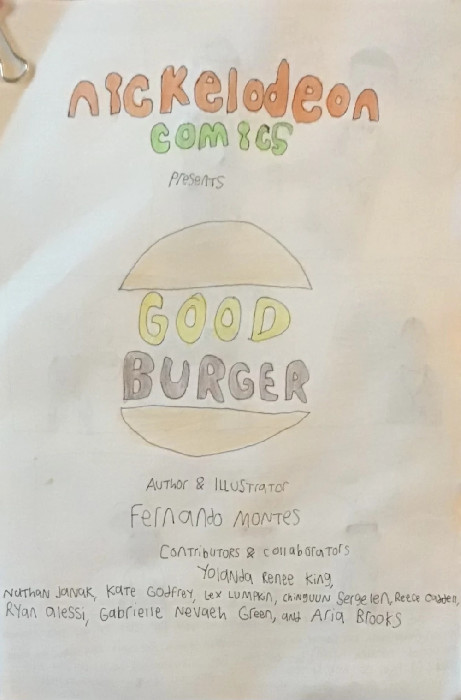 nickelodeon
comics
presents
GOOD
BURGER
Author & ILLUSTRATOR
Fernando MONTES
Contributors & collaborators
Yolanda Renee King,
Nathan Janak, Kate Godfrey, Lex LUMPKIN, CHINGUUN Sergelen, Reece Caddell,
Ryan Alessi, Gabrielle Nevaeh Green, and Aria Brooks